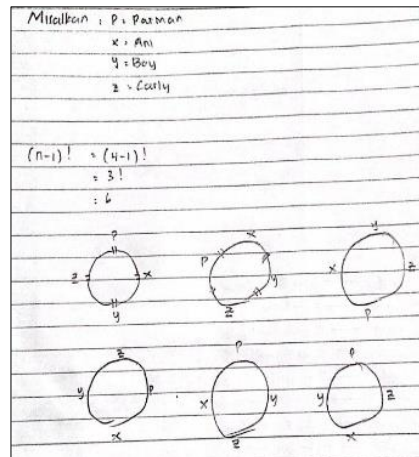 Misalkan : P = Parman
x = Ani
y = Boy
z = Carly
(n-1)! = (4-1)!
= 3!
= 6
P
z x
y
x
P P
y
z
y
x z
P
z
y P
x
P
x y
z
P
y z
x